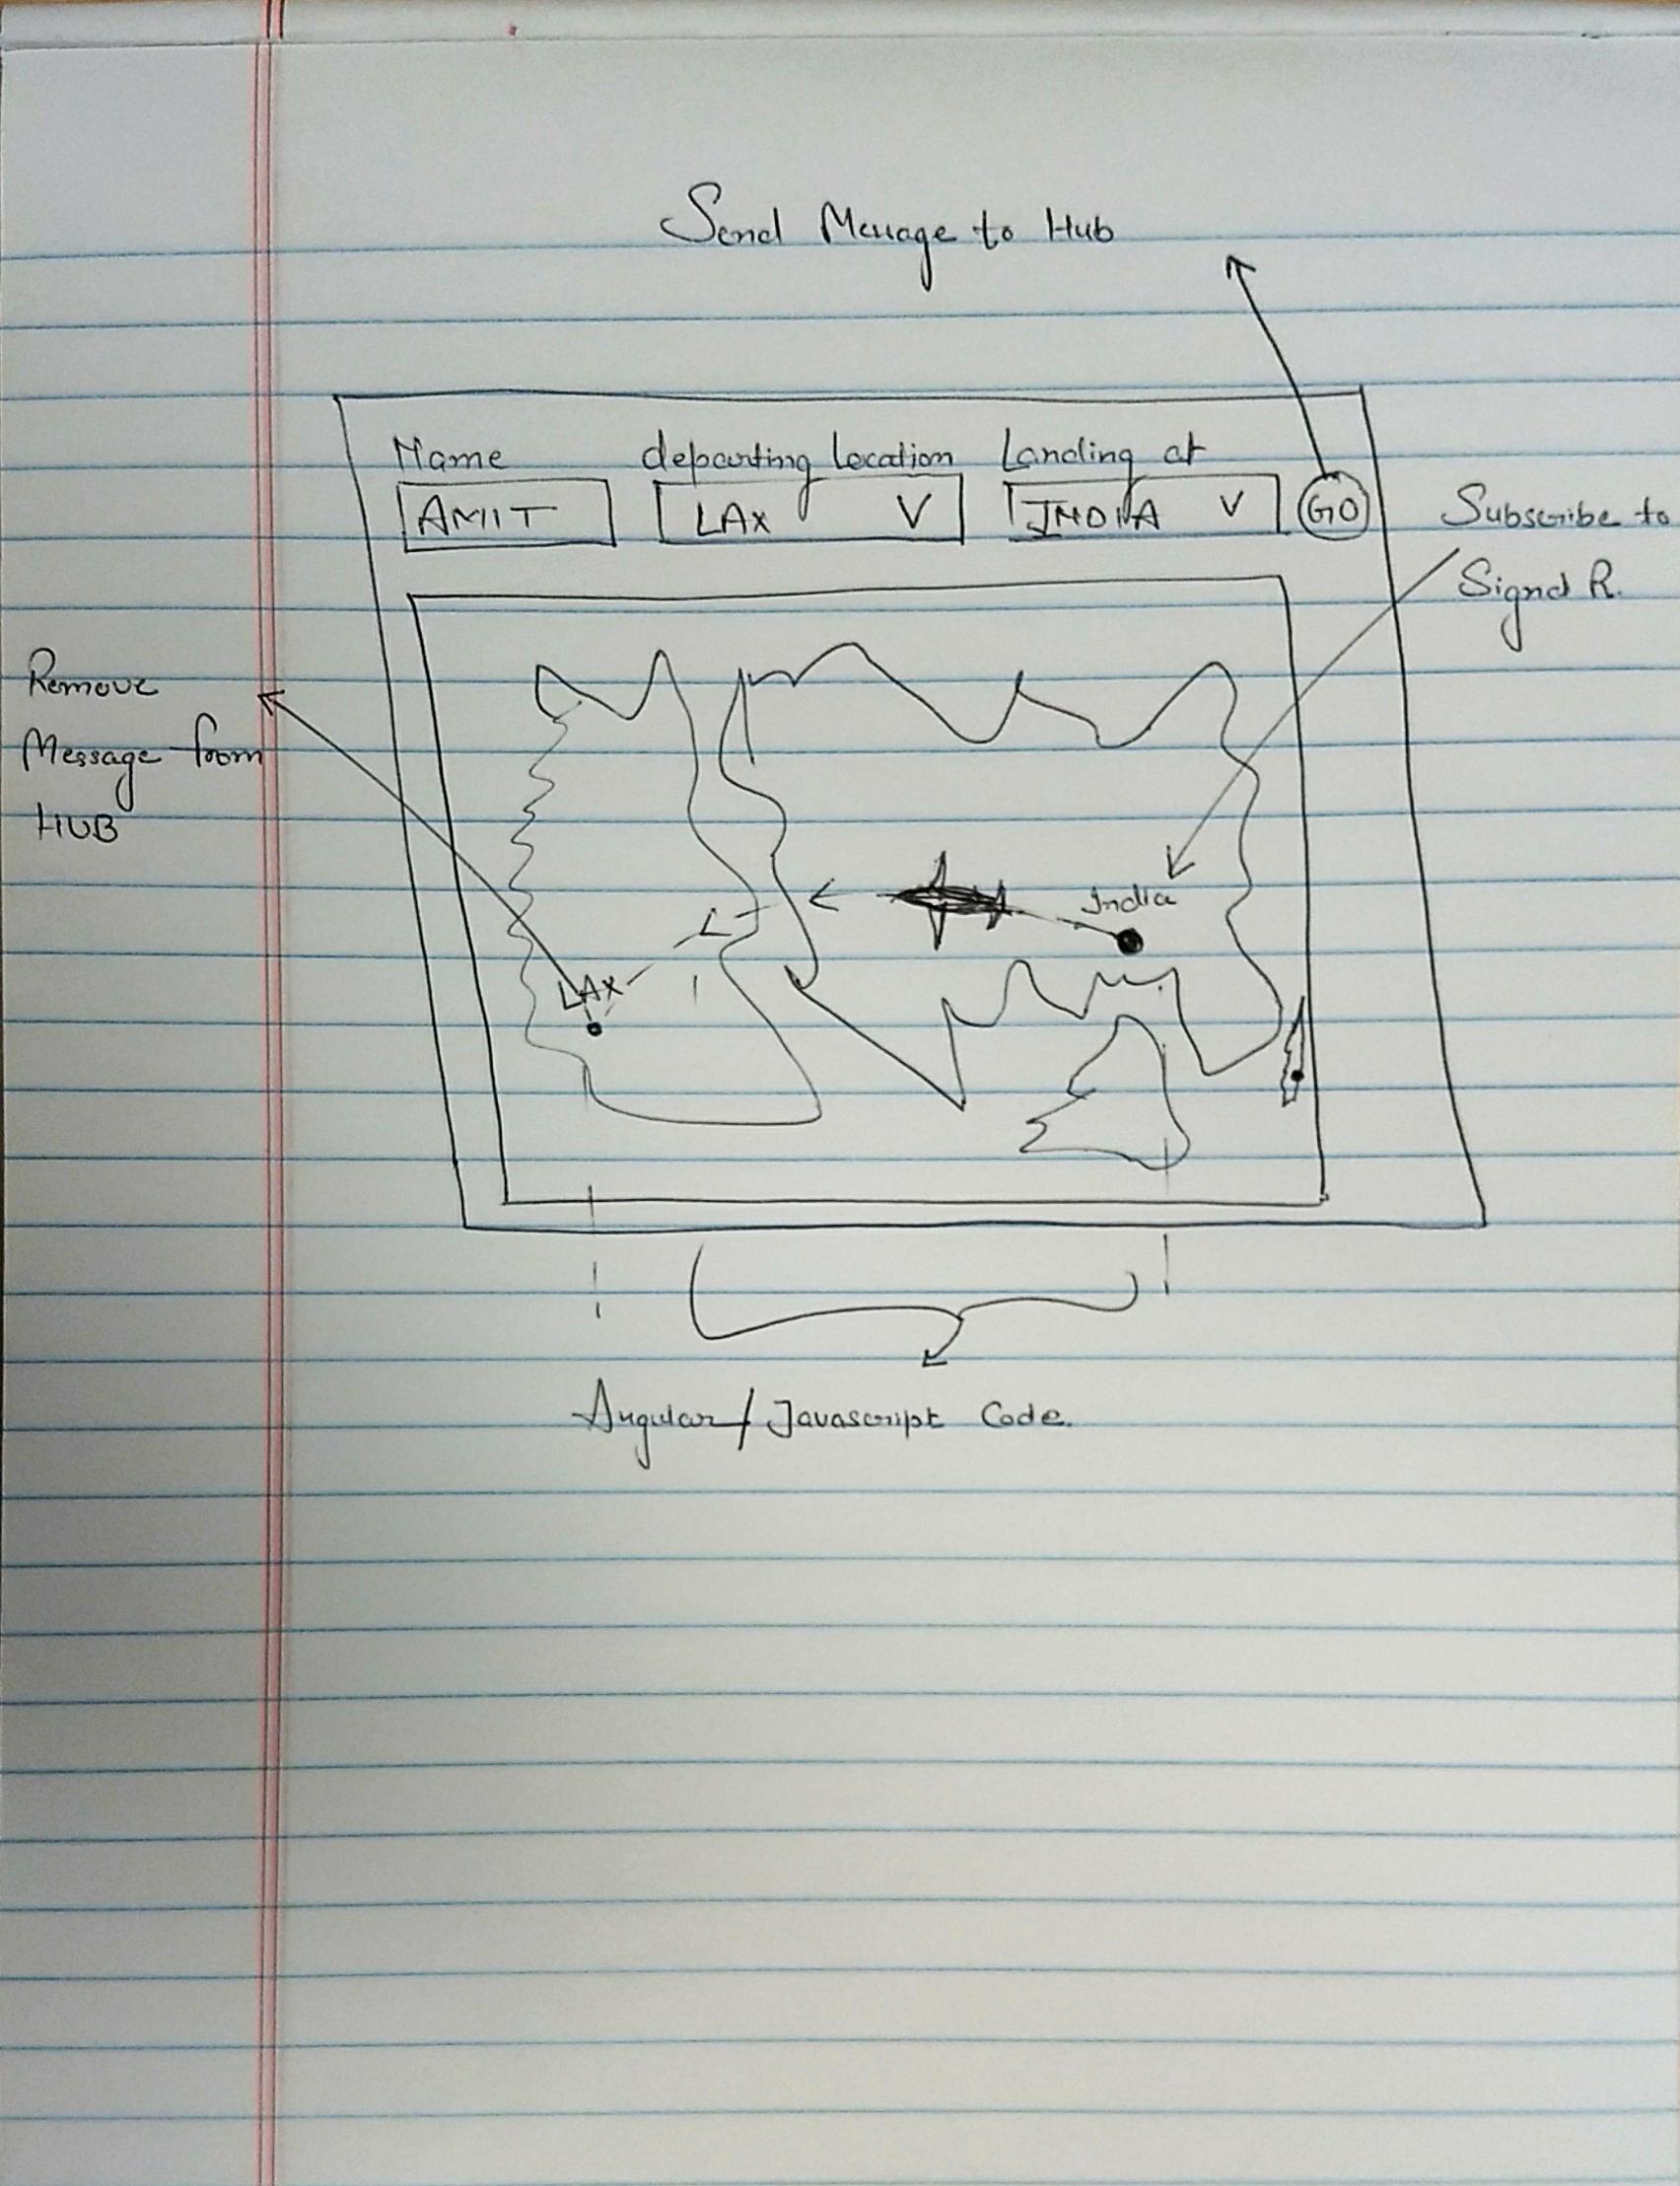 Send Message to Hub
Name departing Location Landing at
AMIT LAX V INDIA V GO
Subscribe to
Signal R.
Remove
Message from
HUB
India
LAX
Angular / Javascript Code.